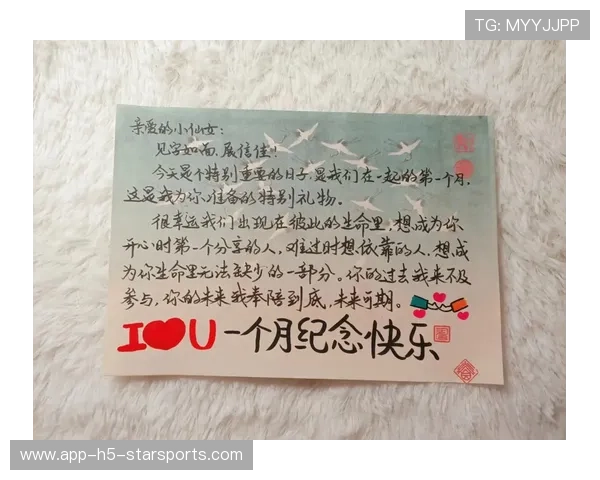 TG: MYYJJPP
亲爱的小仙女：
见字如面，展信佳！
今天是个特别重要的日子，是我们在一起的第一个月，
这是我为你准备的特别礼物。
很幸运我们出现在彼此的生命里，想成为你
开心时第一个分享的人，难过时想依靠的人，想成
为你生命里无法缺少的一部分。你的过去我来不及
参与，你的未来我奉陪到底，未来可期。
I❤U 一个月纪念快乐
www.app-h5-starsports.com